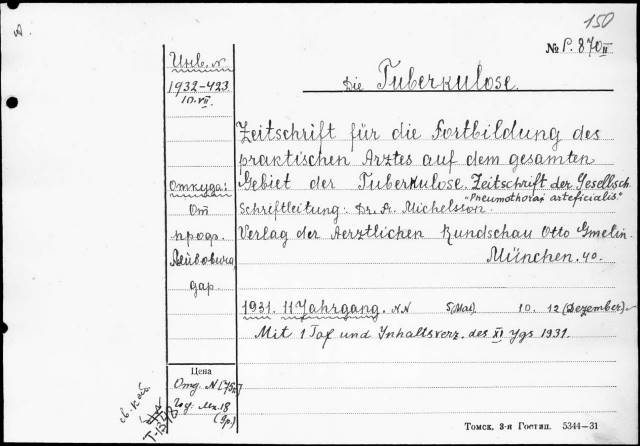 150
№ P. 870 II
Die Tuberkulose.
Инв. №
1932-423
10.VII.
Zeitschrift für die Fortbildung des
praktischen Arztes auf dem gesamten
Gebiet der Tuberkulose. Zeitschrift der Gesellsch.
"Pneumothorax arteficialis"
Schriftleitung: Dr. A. Michelsson.
Verlag der Aerztlichen Rundschau Otto Gmelin.
München. 4o.
Откуда:
От
проф.
дар.
1931. 11 Jahrgang. NN 5(Mai) 10. 12 (Dezember).
Mit 1 Taf und Inhaltsverz. des XI Jgs 1931.
Цена
Отд. N
Год.
Томск, 3-я Гостип. 5344—31